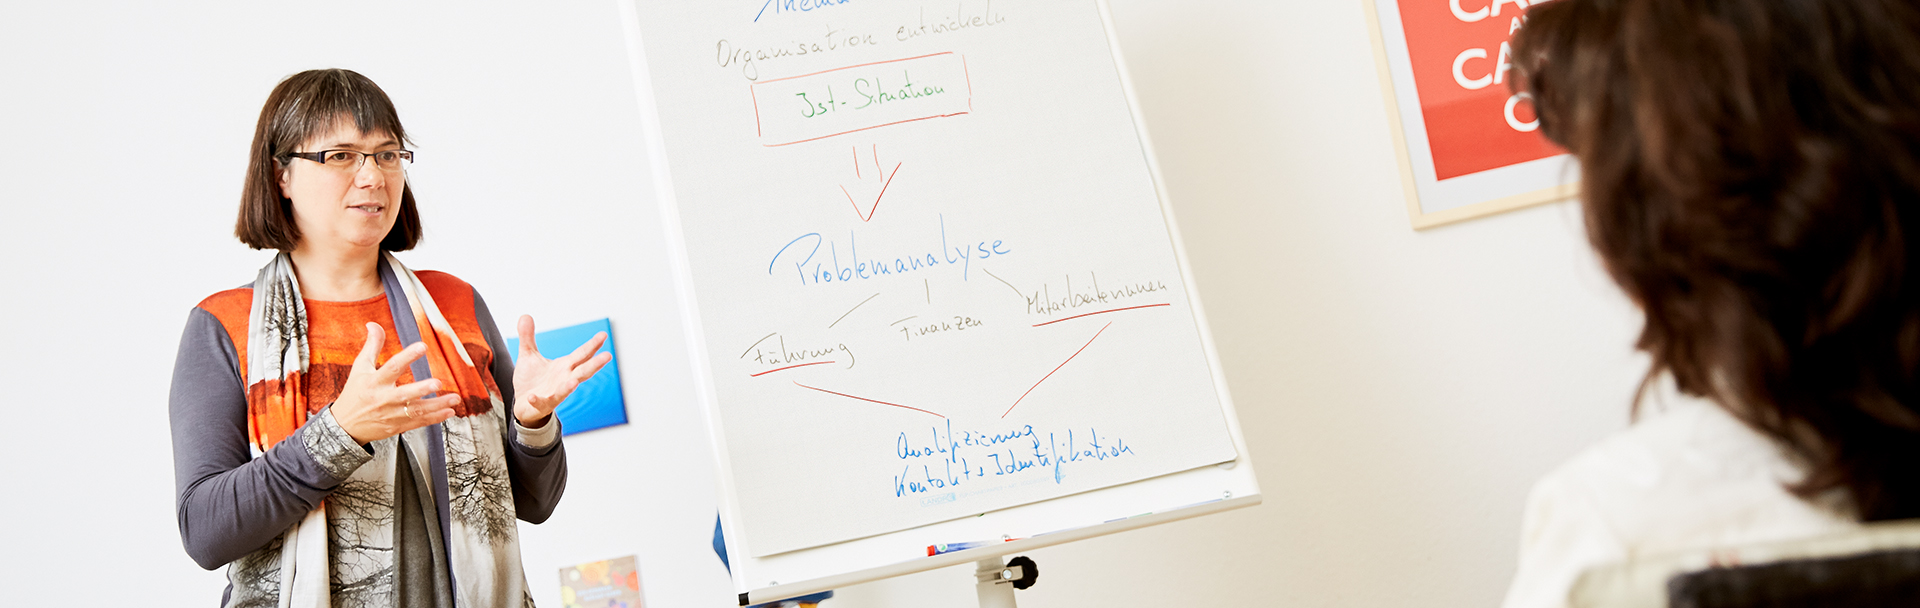 Thema
Organisation entwickeln
Ist-Situation
Problemanalyse
Führung
Finanzen
Mitarbeiterinnen
Qualifizierung
Kontakt + Identifikation
CA
CA